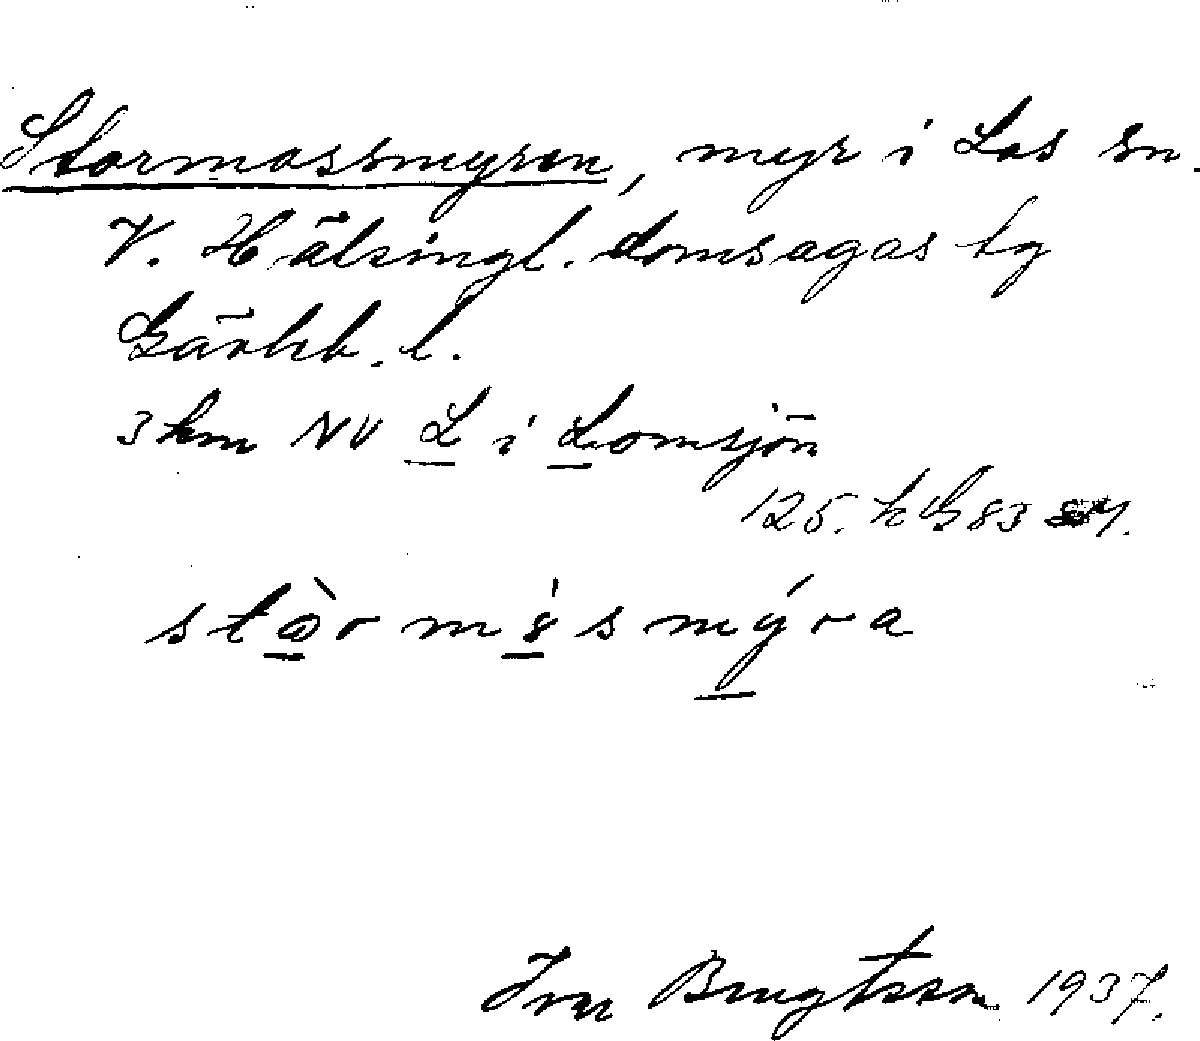 Stormossmyren, myr i Los sn.
V. Hälsingl. domsagas tg
Gävleb. l.
3 km NV L i Lomsjön
125. k G 83
stòrmósmýra
Ivar Bengtsson 1937.